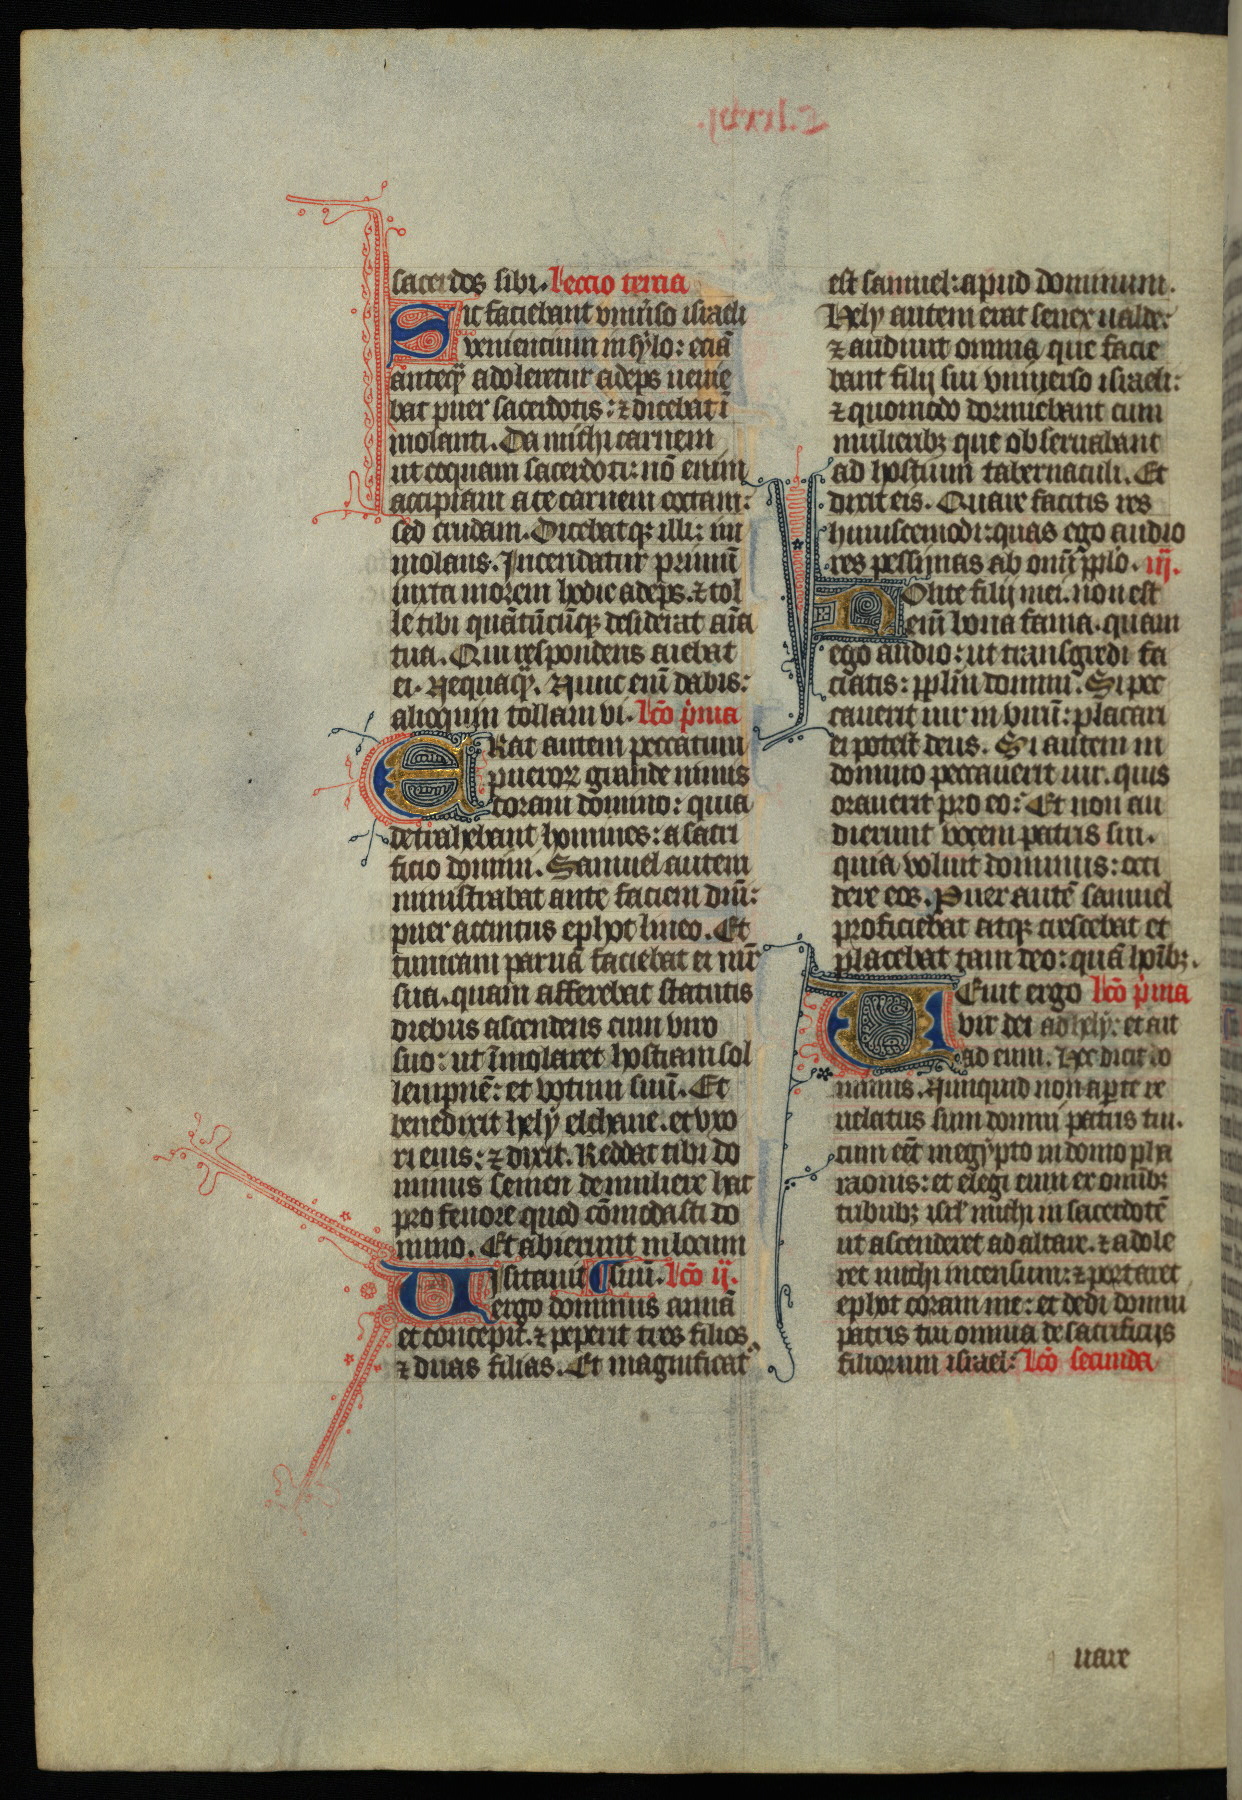 sacerdos sibi. Leccio tercia
Sic faciebant vniũso israeli
venientium in sylo: eciã
anteq̃ adoleretur adeps ueniẽ
bat puer sacerdotis: ⁊ dicebat ĩ
molanti. Da michi carnem
ut coquam sacerdoti: nõ enim
accipiam a te carnem coctam:
sed crudam. Dicebatqꝫ illi: im
molans. Incendatur primũ
iuxta morem hodie adeps. ⁊ tol
le tibi quãtũcũqꝫ desiderat aĩa
tua. Qui respondens aiebat
ei. Nequaq̃. Nunc enĩ dabis:
alioquin tollam vi. Lc̃o p̃ma
ERat autem peccatum
pueroꝝ grande nimis
coram domino: quia
detrahebant homines: a sacri
ficio domini. Samuel autem
ministrabat ante faciem dñi:
puer accintus ephot lineo. Et
tunicam paruã faciebat ei mr̃
sua. quam afferebat statutis
diebus ascendens cum viro
suo: ut ĩmolaret hostiam sol
lempnẽ: et votum suũ. Et
benedixit hely elchane. et vxo
ri eius: ⁊ dixit. Reddat tibi do
minus semen de muliere hac
pro fenore quod cõmodasti do
mino. Et abierunt in locum
Uisitauit suũ. Lc̃o ij.
ergo dominus annã
et concepit. ⁊ peperit tres filios
⁊ duas filias. Et magnificat
est samuel: apud dominum.
Hely autem erat senex ualde:
⁊ audiuit omnia que facie
bant filij sui vniuerso israeli:
⁊ quomodo dormiebant cum
mulieribꝫ que obseruabant
ad hostium tabernaculi. Et
dixit eis. Quare facitis res
huiuscemodi: quas ego audio
res pessimas ab omĩ pp̃lo. iij.
Nolite filij mei. non est
enĩ bona fama. quam
ego audio: ut transgredi fa
ciatis: pp̃lm̃ domini. Si pec
cauerit uir in virũ: placari
ei potest deus. Si autem in
domino peccauerit uir. quis
orauerit pro eo: Et non au
dierunt vocem patris sui.
quia voluit dominus: occi
dere eos. Puer autẽ samuel
proficiebat atqꝫ crescebat et
placebat tam deo: quã hoĩbꝫ.
Uenit ergo Lc̃o p̃ma
vir dei ad hely: et ait
ad eum. Hec dicit do
minus. Nunquid non aperte re
uelatus sum domui patris tui.
cum eẽt in egypto in domo pha
raonis: et elegi eum ex omĩbꝫ
tribubꝫ isrl̃ michi in sacerdotẽ
ut ascenderet ad altare. ⁊ adole
ret michi incensum: ⁊ portaret
ephot coram me: et dedi domui
patris tui omnia de sacrificijs
filiorum israel: Lc̃o secunda
uare